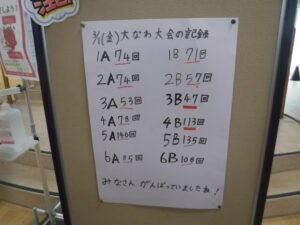 3/1(金)大なわ大会の記録
1A 74回 1B 71回
2A 74回 2B 57回
3A 53回 3B 47回
4A 78回 4B 113回
5A 140回 5B 135回
6A 115回 6B 108回
みなさん がんばっていましたね!